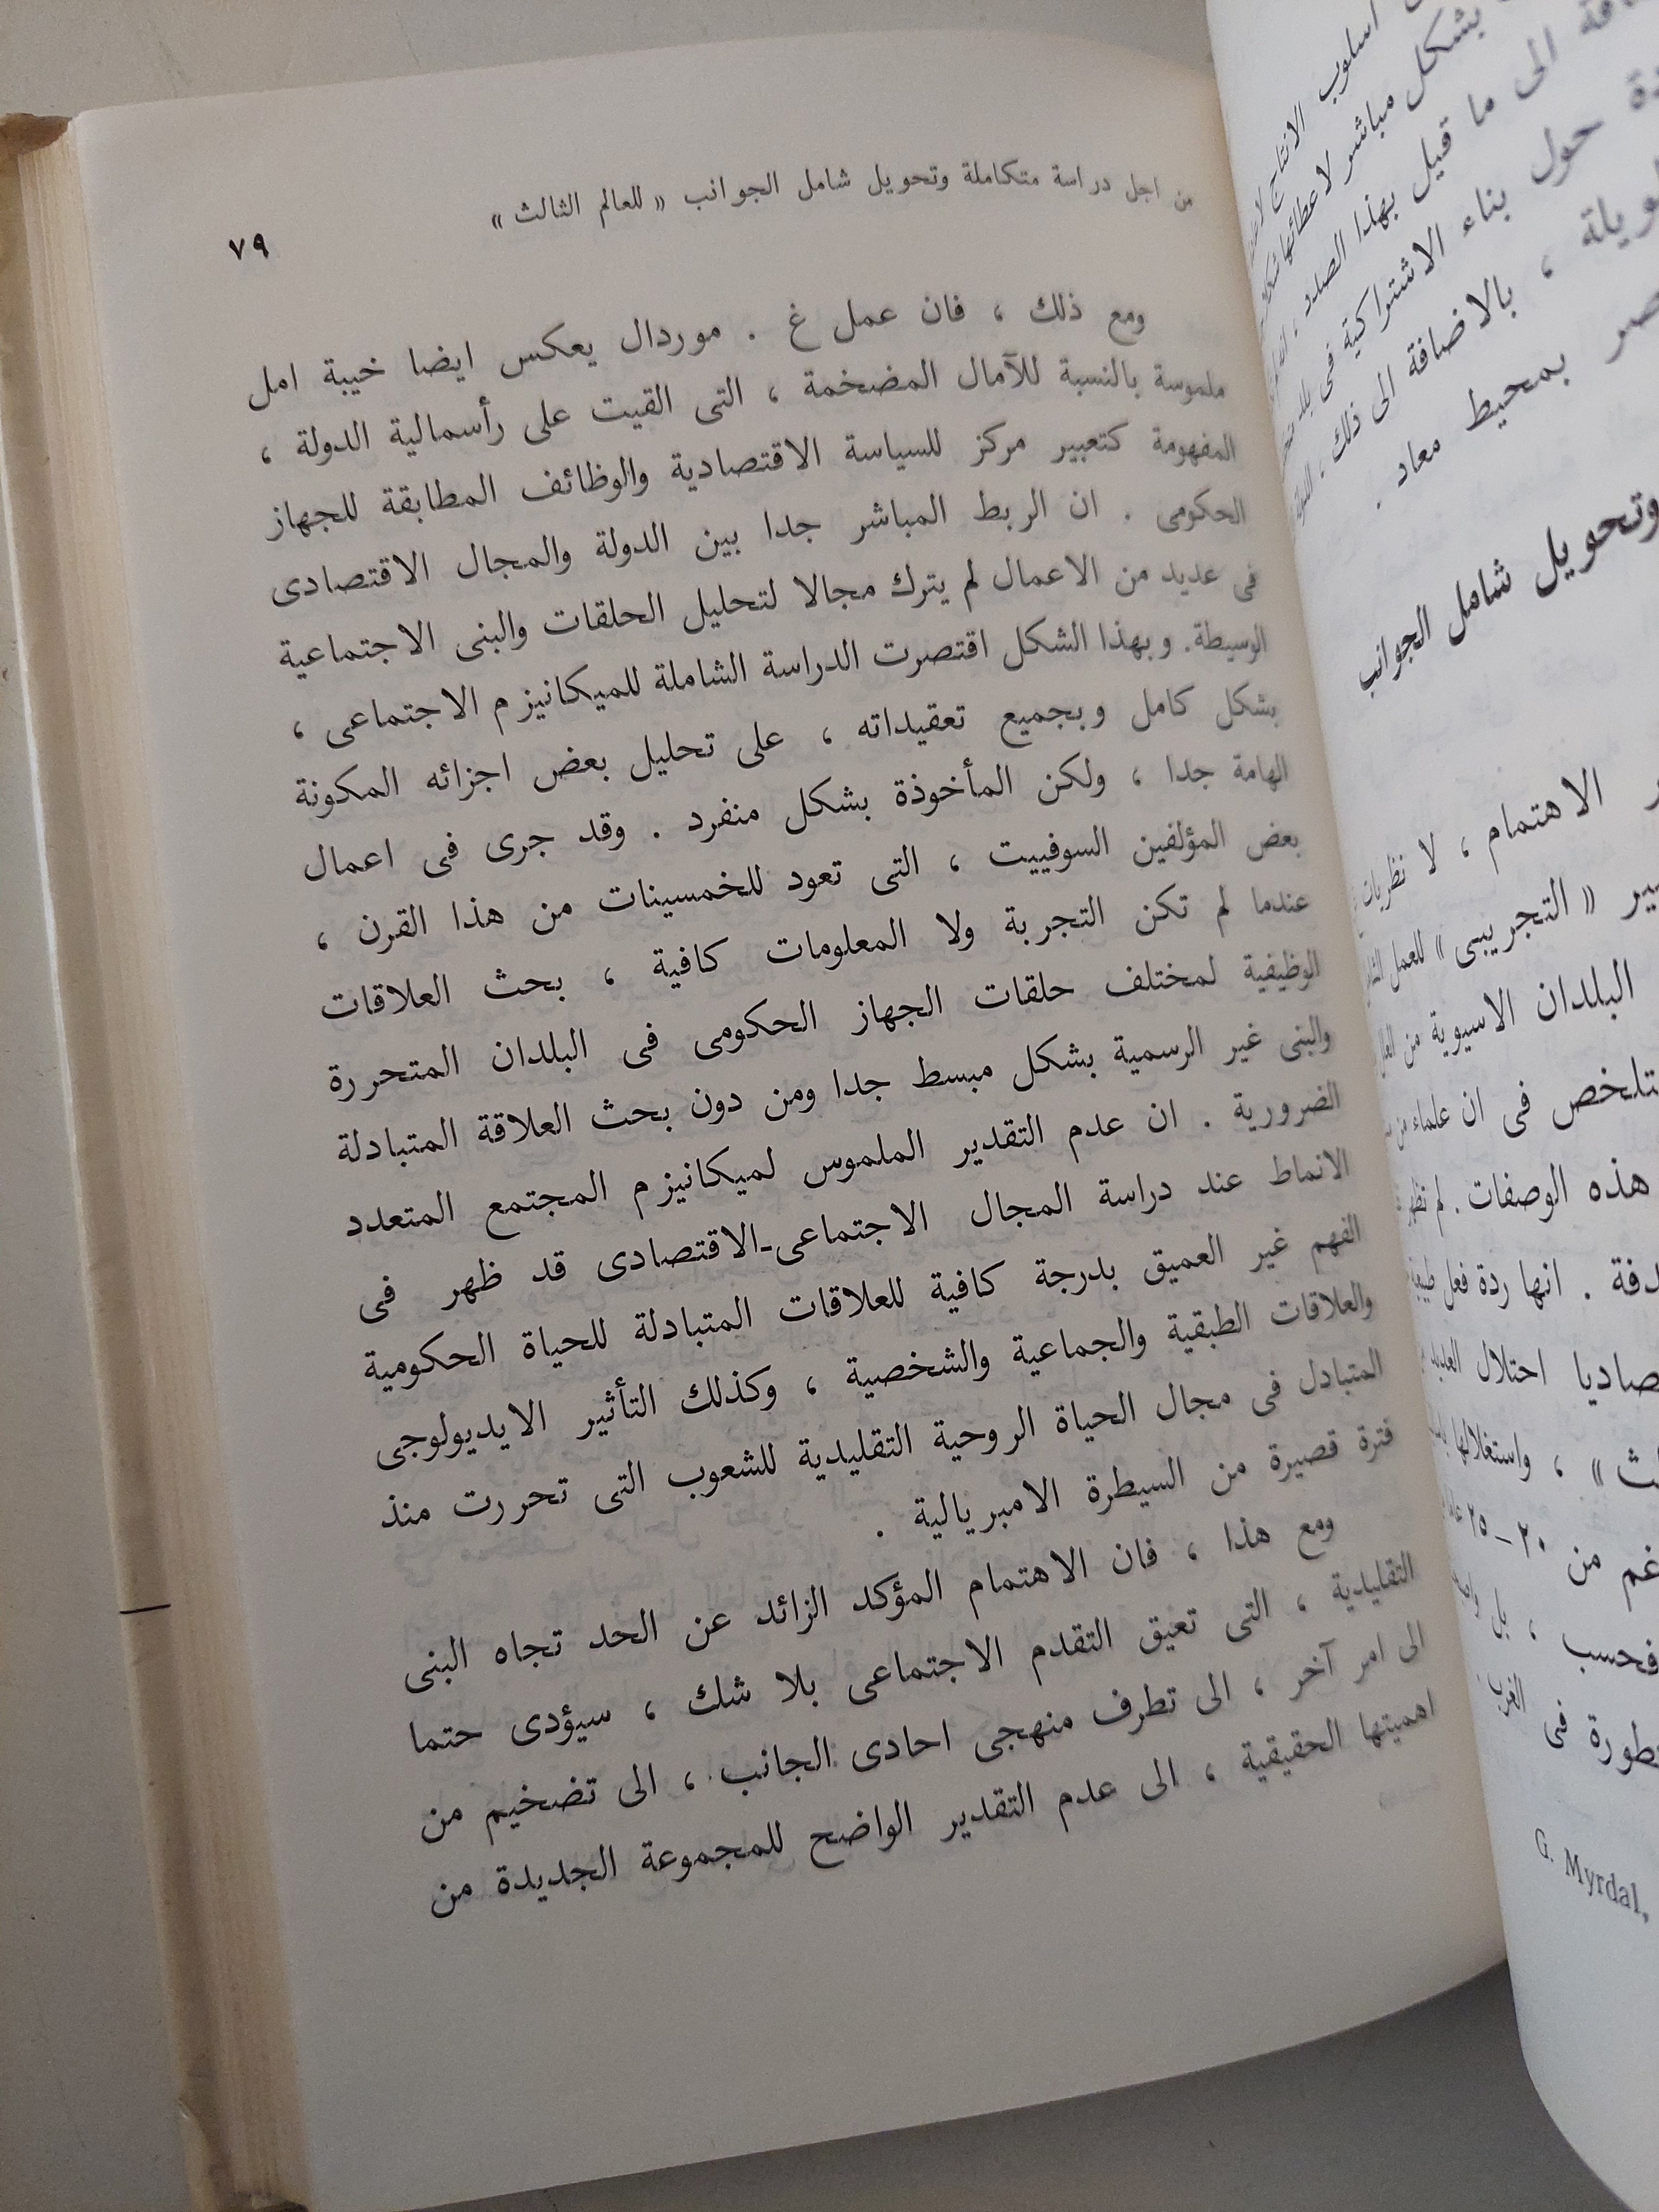 من اجل دراسة متكاملة وتحويل شامل الجوانب « للعالم الثالث »
٧٩
ومع ذلك ، فان عمل غ . موردال يعكس ايضا خيبة امل
ملموسة بالنسبة للآمال المضخمة ، التى القيت على رأسمالية الدولة ،
المفهومة كتعبير مركز للسياسة الاقتصادية والوظائف المطابقة للجهاز
الحكومى . ان الربط المباشر جدا بين الدولة والمجال الاقتصادى
فى عديد من الاعمال لم يترك مجالا لتحليل الحلقات والبنى الاجتماعية
الوسيطة. وبهذا الشكل اقتصرت الدراسة الشاملة للميكانيزم الاجتماعى ،
بشكل كامل وبجميع تعقيداته ، على تحليل بعض اجزائه المكونة
الهامة جدا ، ولكن المأخوذة بشكل منفرد . وقد جرى فى اعمال
بعض المؤلفين السوفييت ، التى تعود للخمسينات من هذا القرن ،
عندما لم تكن التجربة ولا المعلومات كافية ، بحث العلاقات
الوظيفية لمختلف حلقات الجهاز الحكومى فى البلدان المتحررة
والبنى غير الرسمية بشكل مبسط جدا ومن دون بحث العلاقة المتبادلة
الضرورية . ان عدم التقدير الملموس لميكانيزم المجتمع المتعدد
الانماط عند دراسة المجال الاجتماعى-الاقتصادى قد ظهر فى
الفهم غير العميق بدرجة كافية للعلاقات المتبادلة للحياة الحكومية
والعلاقات الطبقية والجماعية والشخصية ، وكذلك التأثير الايديولوجى
المتبادل فى مجال الحياة الروحية التقليدية للشعوب التى تحررت منذ
فترة قصيرة من السيطرة الامبريالية .
ومع هذا ، فان الاهتمام المؤكد الزائد عن الحد تجاه البنى
التقليدية ، التى تعيق التقدم الاجتماعى بلا شك ، سيؤدى حتما
الى امر آخر ، الى تطرف منهجى احادى الجانب ، الى تضخيم من
اهميتها الحقيقية ، الى عدم التقدير الواضح للمجموعة الجديدة من
اسلوب الانتاج
بشكل مباشر لاعطائها
الى ما قيل بهذا الصدد
حول بناء الاشتراكية فى
، بالاضافة الى ذلك ،
بمحيط معاد .
وتحويل شامل الجوانب
الاهتمام ، لا نظريات
« التجريبى » للعمل
البلدان الاسيوية من
فى ان علماء من
هذه الوصفات . لم تظهر
. انها ردة فعل
احتلال
» ، واستغلالها
من ٢٠ – ٢٥
فحسب ، بل
فى الغرب
G. Myrdal,